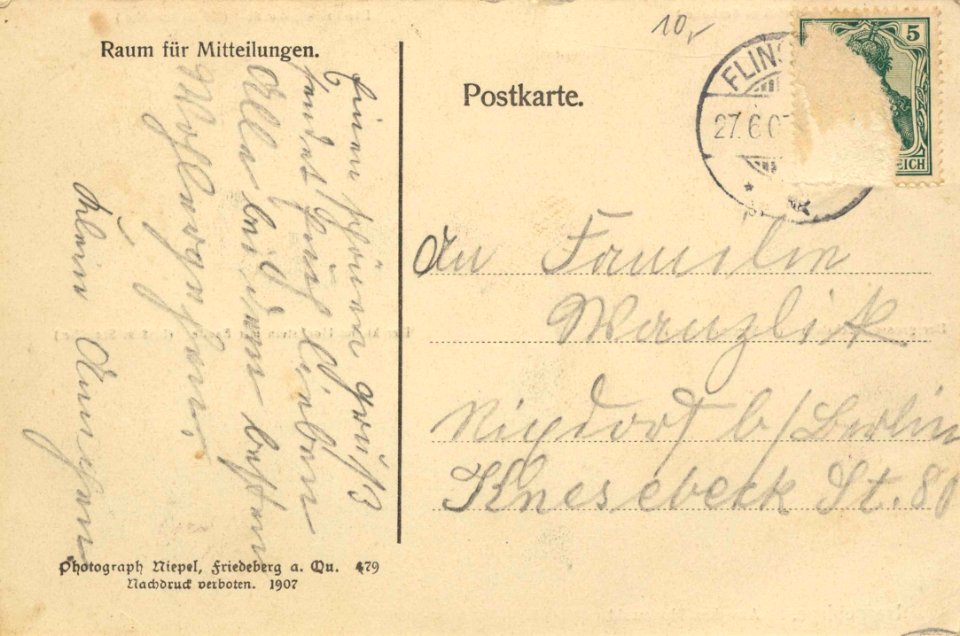 10,-
Raum für Mitteilungen.
Einen schönen Gruß
sendet Euch Lieben
Alle bei dem besten
Wohlergehen.
Klein Annchen
Photograph Niepel, Friedeberg a. Qu. 479
Nachdruck verboten. 1907
Postkarte.
FLINS
27.6.07
5
REICH
An Familie
Wanzlik
Rixdorf b/Berlin
Knesebeck St. 80